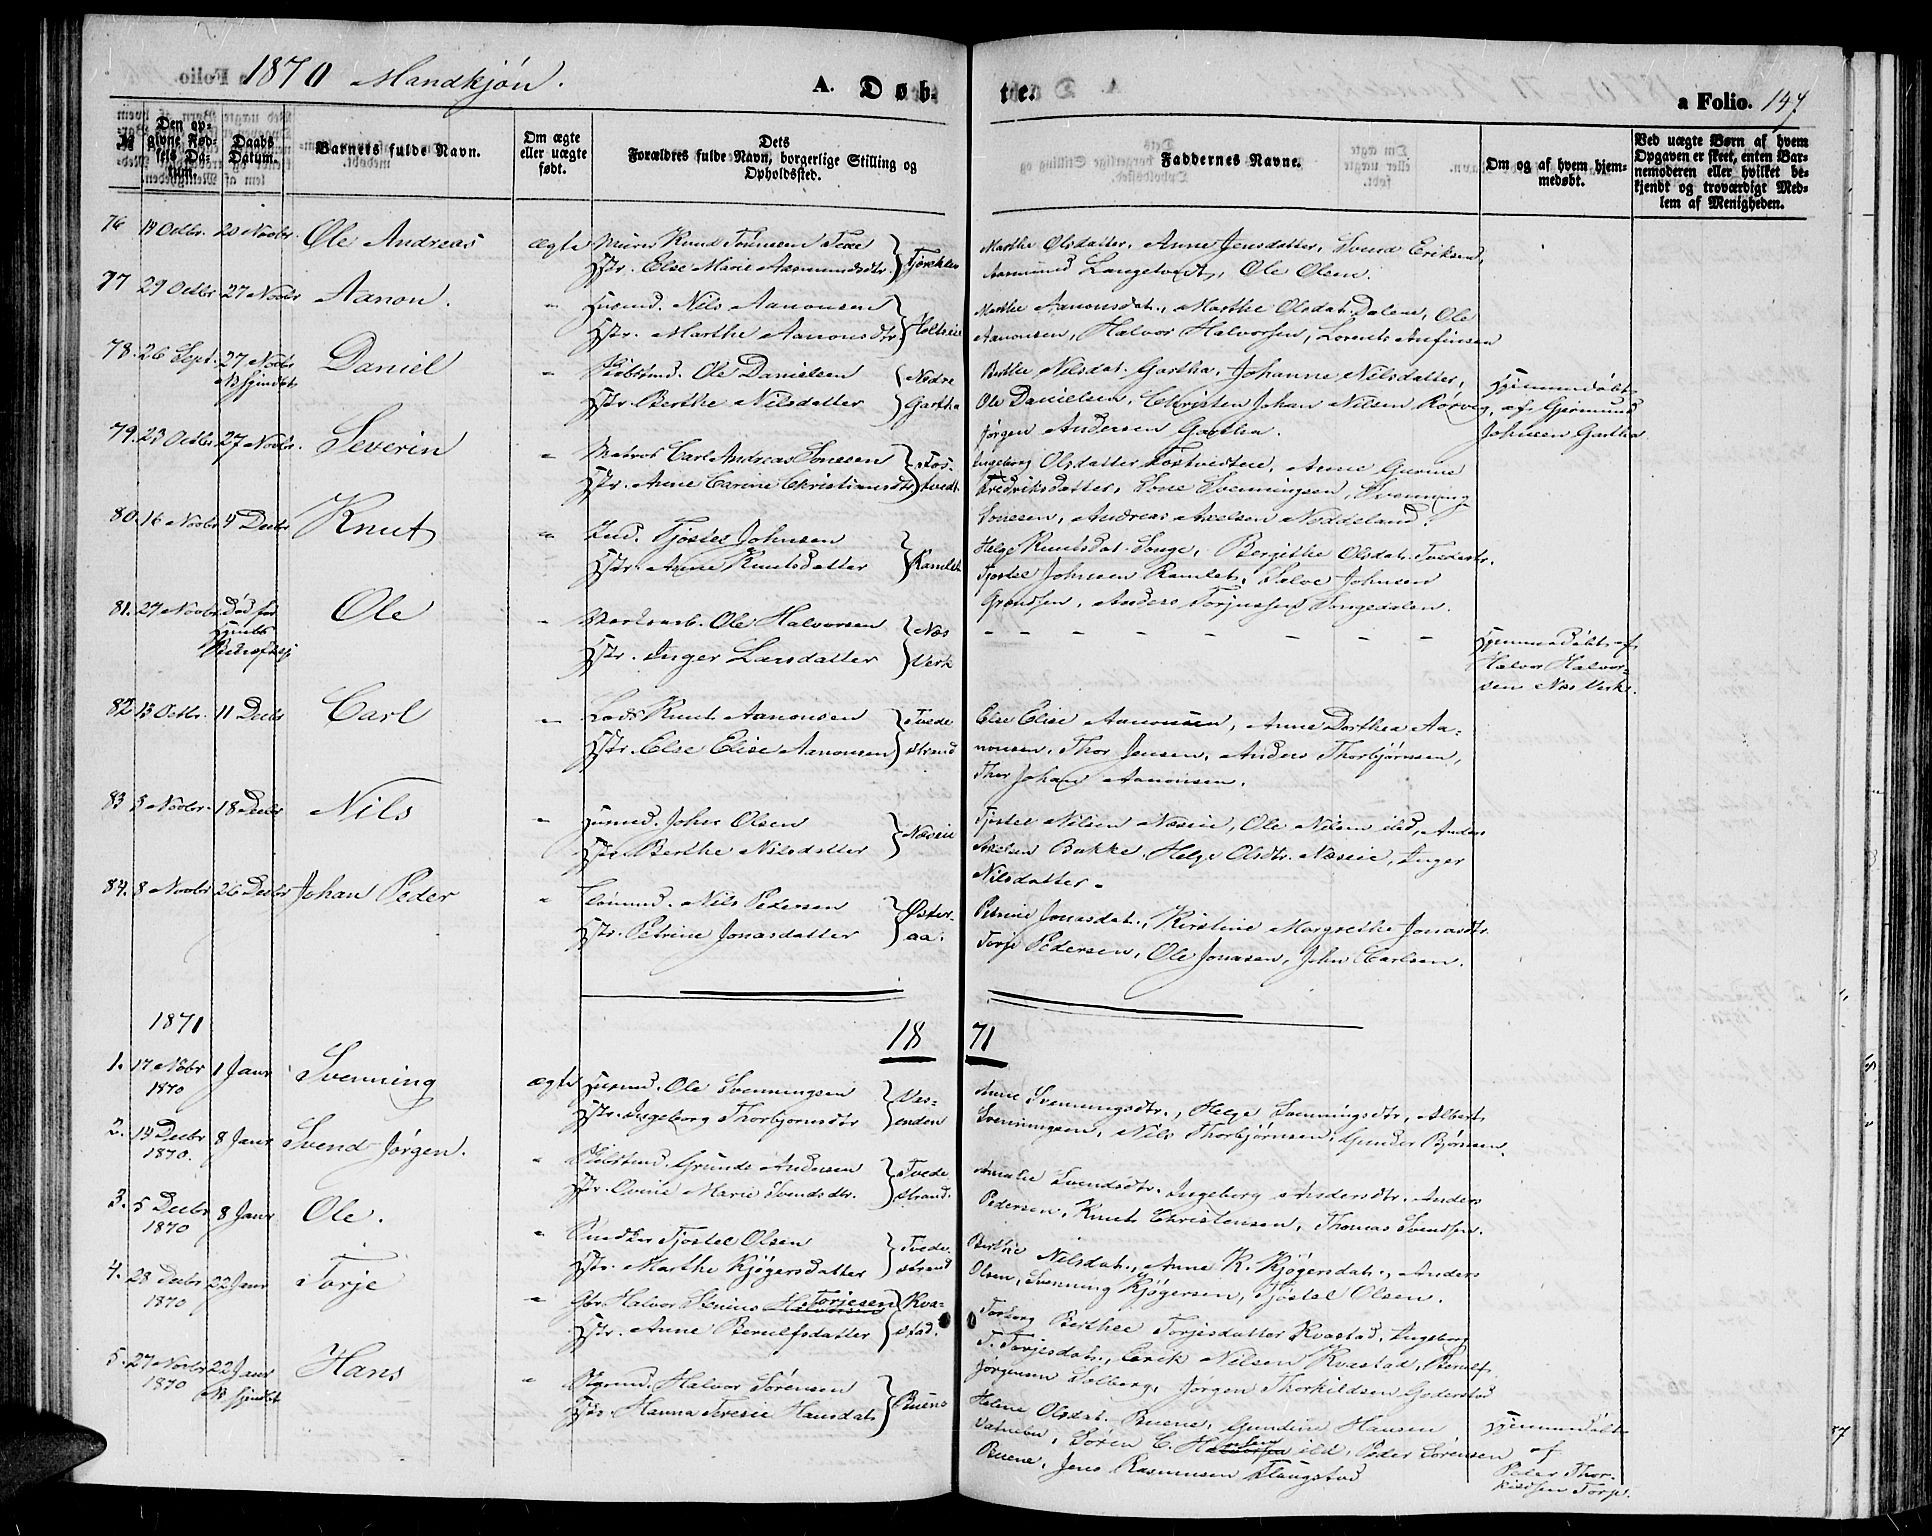 1870 Mandkjøn.
A. Døb-
te.
a Folio. 147
№
Den op-
givne Fød-
sels Da-
tum.
Daabs
Datum.
Barnets fulde Navn.
Om ægte
eller uægte
født.
Dets
Forældres fulde Navn, borgerlige Stilling og
Opholdssted.
Faddernes Navne.
Om og af hvem hjem-
medøbt.
Ved uægte Børn af hvem
Opgaven er skeet, enten Bar-
nemoderen eller hvilket be-
kjendt og troværdigt Med-
lem af Menigheden.
76 Octbr. 20 Novbr. Ole Andreas ægte Knud Tønnesen
Hstr. Else Marie Aasmundsdtr.
Marthe Olsdatter, Anne Jensdatter, Svend Eriksen,
Aasmund Langetvedt, Ole Olsen.
77 29 Octbr 27 Novbr Aanon. " Husmd. Nils Aanonsen
Hstr. Marthe Aanonsdtr.
Marthe Aanonsdat., Marthe Olsdat. Dalene, Ole
Aanonsen, Halvor Halvorsen, Lorents Anfinsen
78. 26 Sept. 27 Novbr Daniel " Ole Danielsen Nedre
Hstr. Berthe Nilsdatter Gartha
Berthe Nilsdat. Gartha, Johanne Nilsdatter,
Ole Danielsen, Christen Johan Nilsen Rørvig,
Jørgen Andersen Gartha.
Hjemmedøbt
af Gjermund
Johnsen Gartha
79. 23 Octbr. 27 Novbr. Severin " Matros Carl Andreas Sonesen Fos-
Hstr. Anne Carine Christiansdtr. tvedt
Ingeborg Olsdatter Fostvedtne, Anne Gurine
Fredriksdatter, Sone Svenningsen, Svenning
Sonesen, Andreas Axelsen Neddeland.
80. 16 Novbr 4 Decbr Knut " Ind. Tjøstel Johnsen
Hstr. Anne Knutsdatter Ramlet
Helge Knutsdat. Songe, Bergithe Olsdat. Tvedestr.
Tjøstel Johnsen Ramlet, Salve Johnsen
Grandsen, Anders Torjussen Songedalen.
81. 27 Novbr. Død før Ole " Verksarb. Ole Halvorsen Næs
Hstr. Inger Larsdatter Verk
Hjemmedøbt af
Halvor Halvor-
sen Næs Verk.
82 13 Octbr. 11 Decbr Carl " Lods Knut Aanonsen Tvede
Hstr. Else Elise Aanonsen strand
Else Elise Aanonsen, Anne Dorthea Aa-
nonsen, Thor Jensen, Anders Thorbjørnsen,
Thor Johan Aanonsen.
83 5 Novbr. 18 Decbr Nils " Husmd. John Olsen
Hstr. Berthe Nilsdatter Næseie
Tjøstel Nilsen Næseie, Ole Nilsen ibd, Anders
Axelsen Bakke, Helge Olsdtr. Næseie, Inger
Nilsdatter.
84. 8 Novbr 26 Decbr Johan Peder " Nils Pedersen Øster-
Hstr. Petrine Jonasdatter aa.
Petrine Jonasdat., Kirstine Margrethe Jonasdtr.
Torje Pedersen, Ole Jonasen, John Carlsen.
1871
18 71
1. 17 Novbr 1 Janr Svenning ægte Husmd. Ole Svenningsen Ves-
1870 Hstr. Ingeborg Thorbjørnsdtr enden
Anne Svenningsdtr., Helge Svenningsdtr, Albert
Svenningsen, Nils Thorbjørnsen, Gunder Bjørnsen.
2. 14 Decbr 8 Janr Svend Jørgen. " Grunde Andersen Tvede
1870. Hstr. Ovine Marie Svendsdtr. strand.
Amalie Svendsdtr. Ingeborg Andersdtr. Anders
Pedersen, Knut Christensen, Thomas Svendsen.
3. 5 Decbr 8 Janr Ole. " Snedker Tjøstel Olsen Tvede
1870 Hstr. Marthe Kjøgersdatter strand
Berthe Nilsdat., Anne K. Kjøgersdat., Anders
Olsen, Svenning Kjøgersen, Tjøstel Olsen.
4. 28 Decbr 22 Janr Torje " Gbr Halvor Stenius Torjesen Kva-
1870 Hstr. Anne Berulfsdatter stad.
Torborg Berthee Torjesdatter Kvastad, Ingeborg
T. Torjesdat., Erik Nilsen Kvastad, Berulf
Jørgensen Solberg, Jørgen Thorkildsen Goderstad
5. 27 Novbr 22 Janr Hans " Halvor Sørensen
1870 Hstr. Hanna Teresie Hansdat. Buene
Helene Olsdat. Buene, Gundine Hansen
Vatnebu, Søren C. ibd, Peder Sørensen
Buene, Jens Rasmussen Flaugstad
Hjemmedøbt
af
Peder Thor-
kildsen Torje.